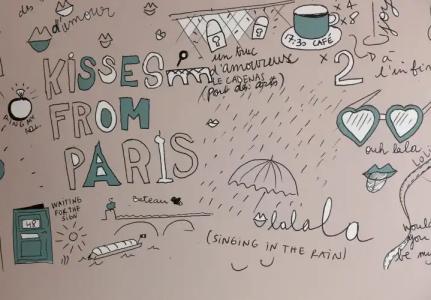 des
d'amour
KISSES
FROM
PARIS
un truc
d'amoureux
LE CADENAS
(Pont des arts)
17:30 CAFÉ
x 4
x 8
x 2
à
l'infin
joy
RING MY
BELL
ouh lala
WAITING
FOR THE
SIGN
48
bateau
lalala
(SINGING IN THE RAIN)
would
you
be my